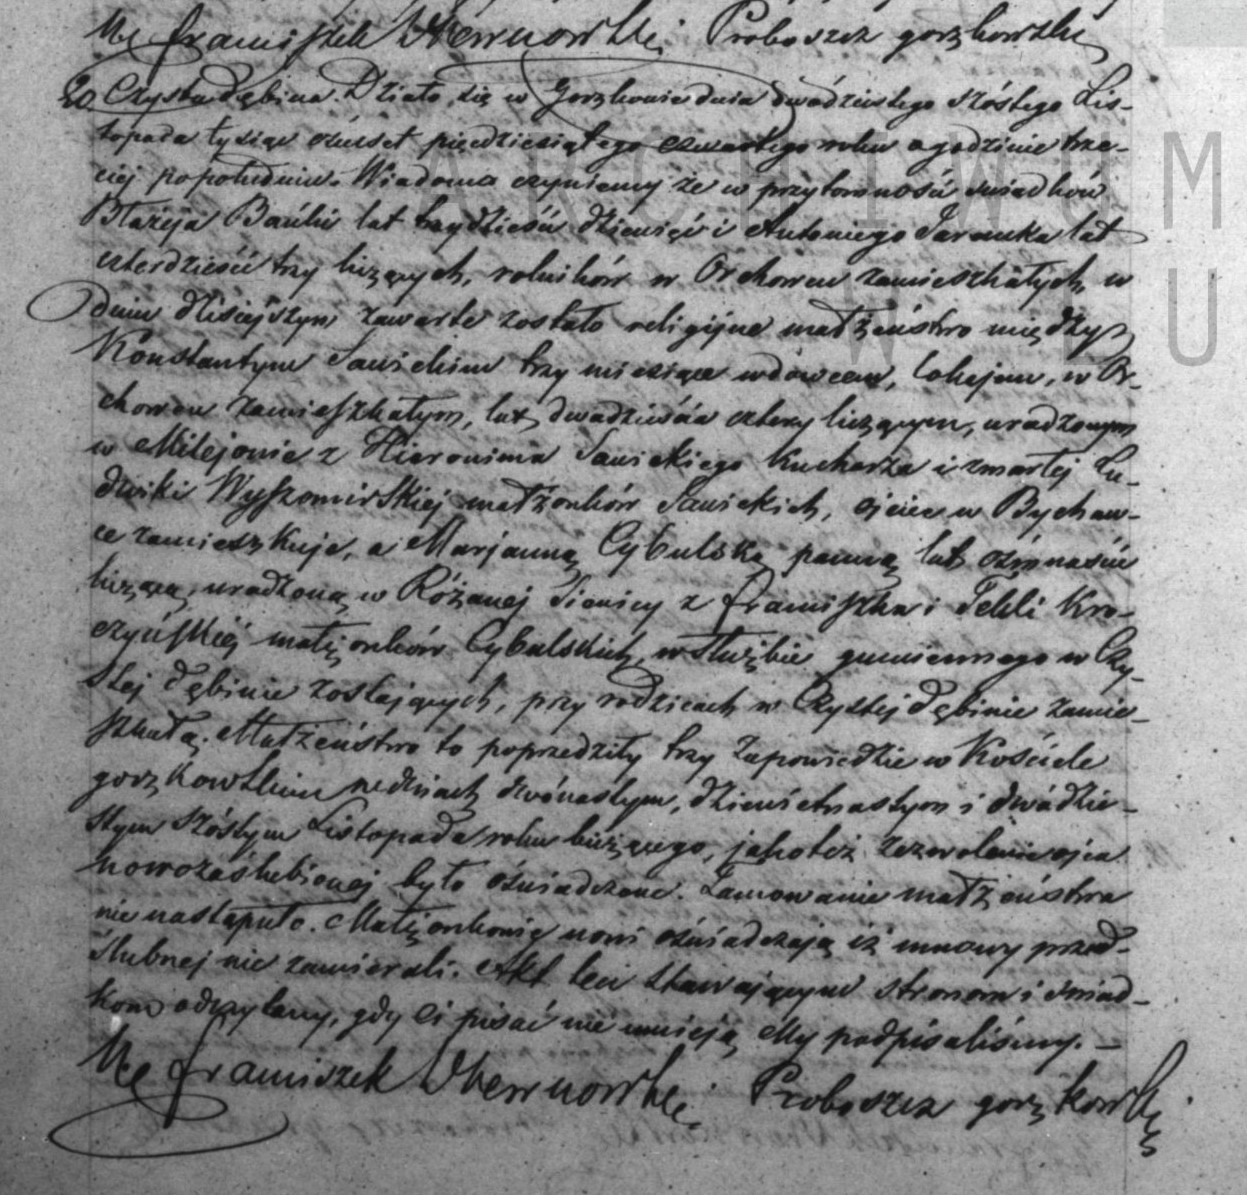 Franciszek Proboszcz gorzkowski
20 Czysta Dębina. Działo się w Gorzkowie dnia dwódziestego szóstego Lis-
topada tysiąc ośmset pięćdziesiątego czwartego roku o godzinie trze-
ciej popołudniu. Wiadomo czyniemy że w przytomności świadków
Błażeja lat trzydzieści dziewięć i Antoniego lat
czterdzieści trzy liczących, rolników w Orchowcu zamieszkałych, w
dniu dzisiejszym zawarte zostało religijne małżeństwo między
Konstantym Sawickim trzy miesiące wdowcem, lokajem, w Or-
chowcu zamieszkałym, lat dwadzieścia cztery liczącym, urodzonym
w Milejowie z Hieronima Sawickiego kucharza i zmarłej Lu-
dwiki Wyszomirskiej małżonków Sawickich, ojciec w Bychaw-
ce zamieszkuje, a Marjanną Cybulską panną lat ośmnaście
liczącą, urodzoną w Różanej Sienicy z Franciszka i Tekli Kro-
czyńskiéj małżonków Cybulskich, w służbie gumiennego w Czy-
stej Dębinie zostających, przy rodzicach w Czystej Dębinie zamie-
szkałą. Małżeństwo to poprzedziły trzy zapowiedzie w Kościele
gorzkowskim w dniach dwónastym, dziewietnastym i dwódzie-
stym szóstym Listopada roku bieżącego, jakoteż zezwolenie ojca
nowozaślubionej było oświadczone. Tamowanie małżeństwa
nie nastąpiło. Małżonkowie nowi oświadczają iż umowy przed-
ślubnej nie zawierali. Akt ten stawającym stronom i świad-
kom odczytany, gdy ci pisać nie umieją My podpisaliśmy. —
Franciszek Proboszcz gorzkowski